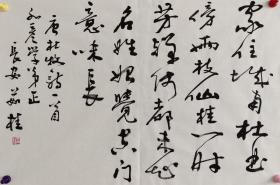 家住城南杜曲
傍两枝仙桂一时
芳禅师都未知
名姓始觉空门
意味长
唐杜牧诗一首
学弟正
长安茹桂